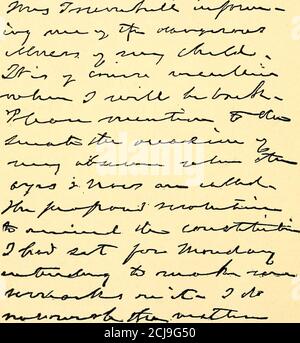 Mrs Trumbull inform-
ing me of the dangerous
illness of my child.
It is of course uncertain
when I will be back.
Please mention to the
Senate the occasion of
my absence when the
ayes & noes are called.
The proposed resolution
to amend the constitution
I had set for Monday
intending to make some
remarks on it. I do
not wish the matter
alamy
a
a
alamy
2CJ9G50